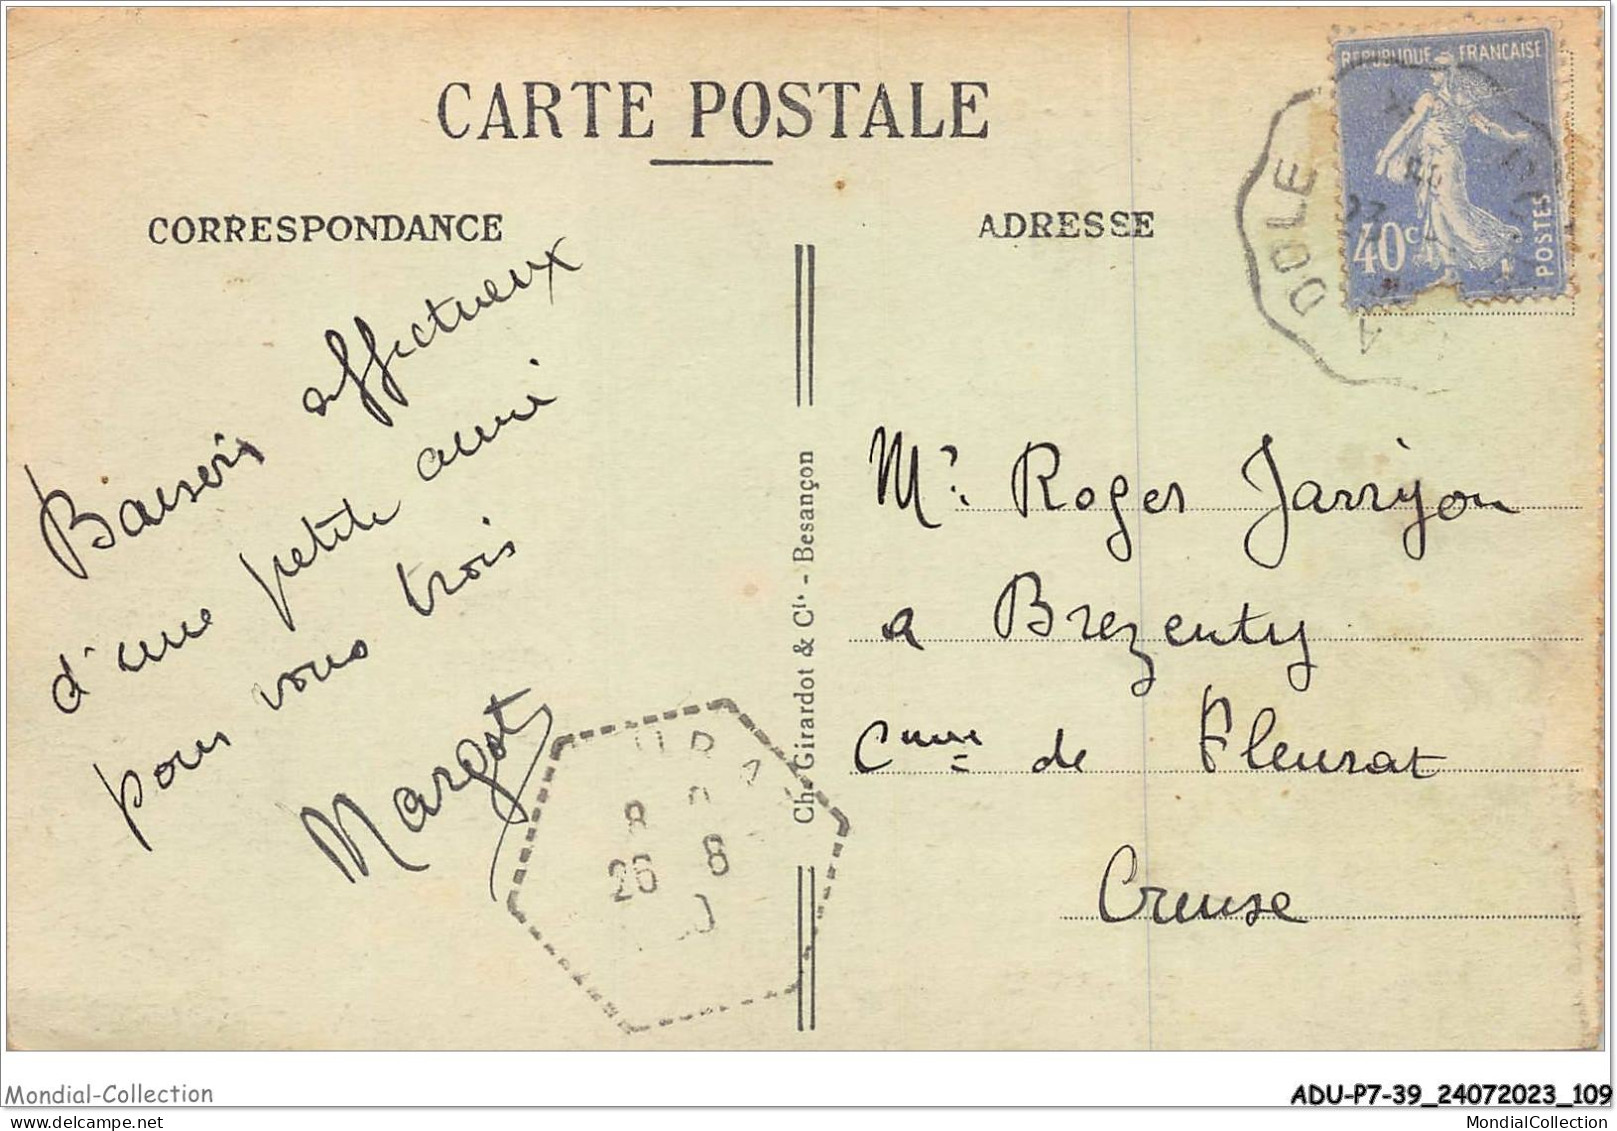 CARTE POSTALE
CORRESPONDANCE
ADRESSE
REPUBLIQUE FRANCAISE
40c
POSTES
DOLE
Baisers affectueux
d'une petite amie
pour vous trois
Margot
Ch. Girardot & Cie - Besançon
Mr Roger Jarrijon
a Brezenty
Cmune de Fleurat
Creuse
8
26 8
Mondial-Collection
ADU-P7-39_24072023_109
MondialCollection